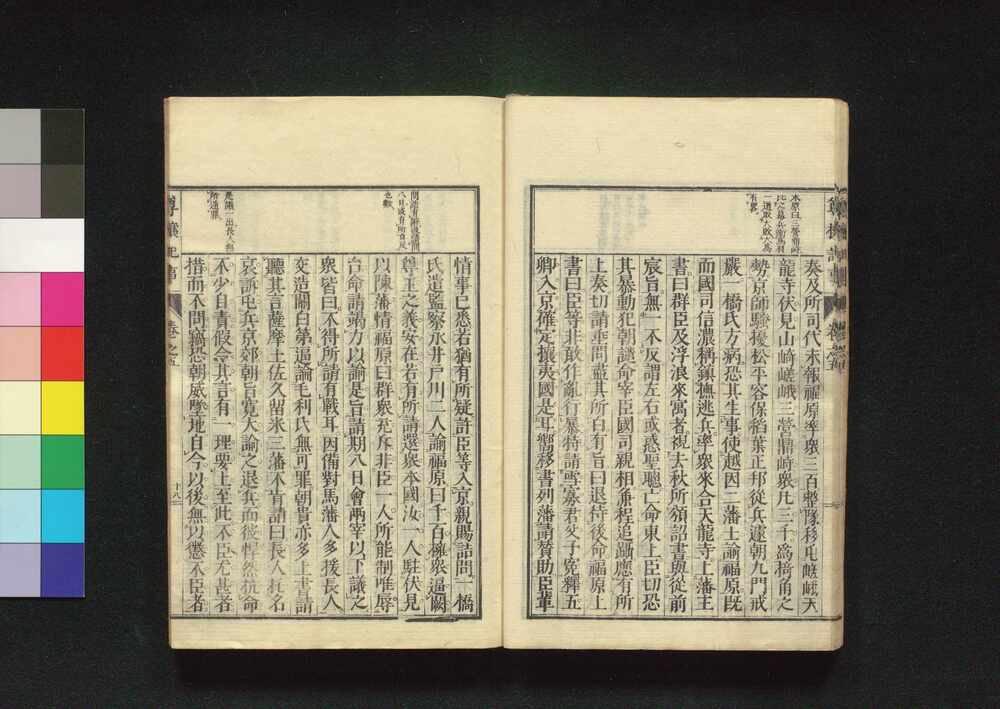 奏及所司代未報福原率衆三百整隊移屯嵯峨天
龍寺伏見山崎嵯峨三營鼎峙衆凡三千爲掎角之
勢京師騷擾松平容保稻葉正邦從兵遽朝九門戒
嚴一橋氏方病恐其生事使越因二藩士諭福原既
而國司信濃稱鎭撫逃兵率衆來合天龍寺上藩主
書曰群臣及浮浪來寓者視去秋所頒詔書與從前
宸旨無一不反謂左右或惑聖聰亡命東上臣切恐
其暴動犯朝譴命宰臣國司親相兼程追躡應有所
上奏切請垂問盡其所白有旨曰退待後命福原上
書曰臣等非敢作亂行暴特請雪寡君父子冤釋五
卿入京確定攘夷國是耳嚮移書列藩請贊助臣輩
情事已悉若猶有所疑許臣等入京親賜詰問一橋
氏遣監察永井戸川二人諭福原曰千百擁衆逼闕
尊王之義安在若有所請還衆本國汝一人駐伏見
以陳藩情福原曰群衆充斥非臣一人所能制唯辱
台命請竭力以諭是旨請期八日會兩宰以下議之
衆皆曰不得所請有戰耳因備對馬藩人多援長人
交造關白第逼論毛利氏無可罪朝貴亦多上書請
聽其言薩摩土佐久留米三藩不肯請曰長人托名
哀訴屯兵京郊朝旨寛大諭之退兵而彼悍然抗命
不少自責假令其言有一理要上至此不臣尤甚者
措而不問竊恐朝威墜地自今以後無以懲不臣者
尊攘紀事
卷之五
十八